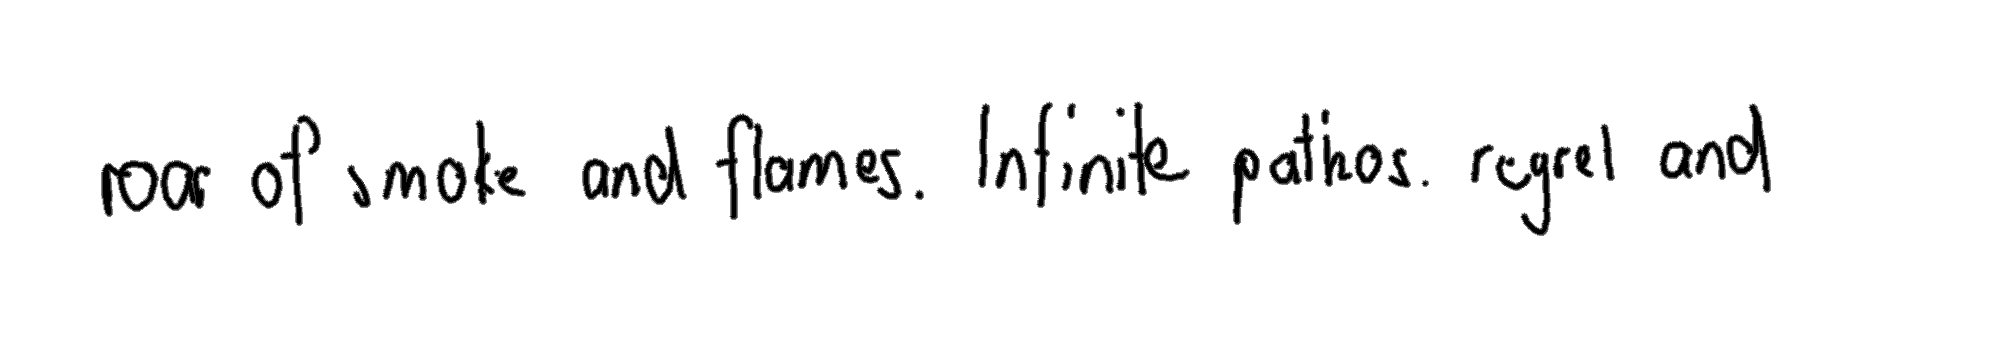 roar of smoke and flames. Infinite pathos. regret and